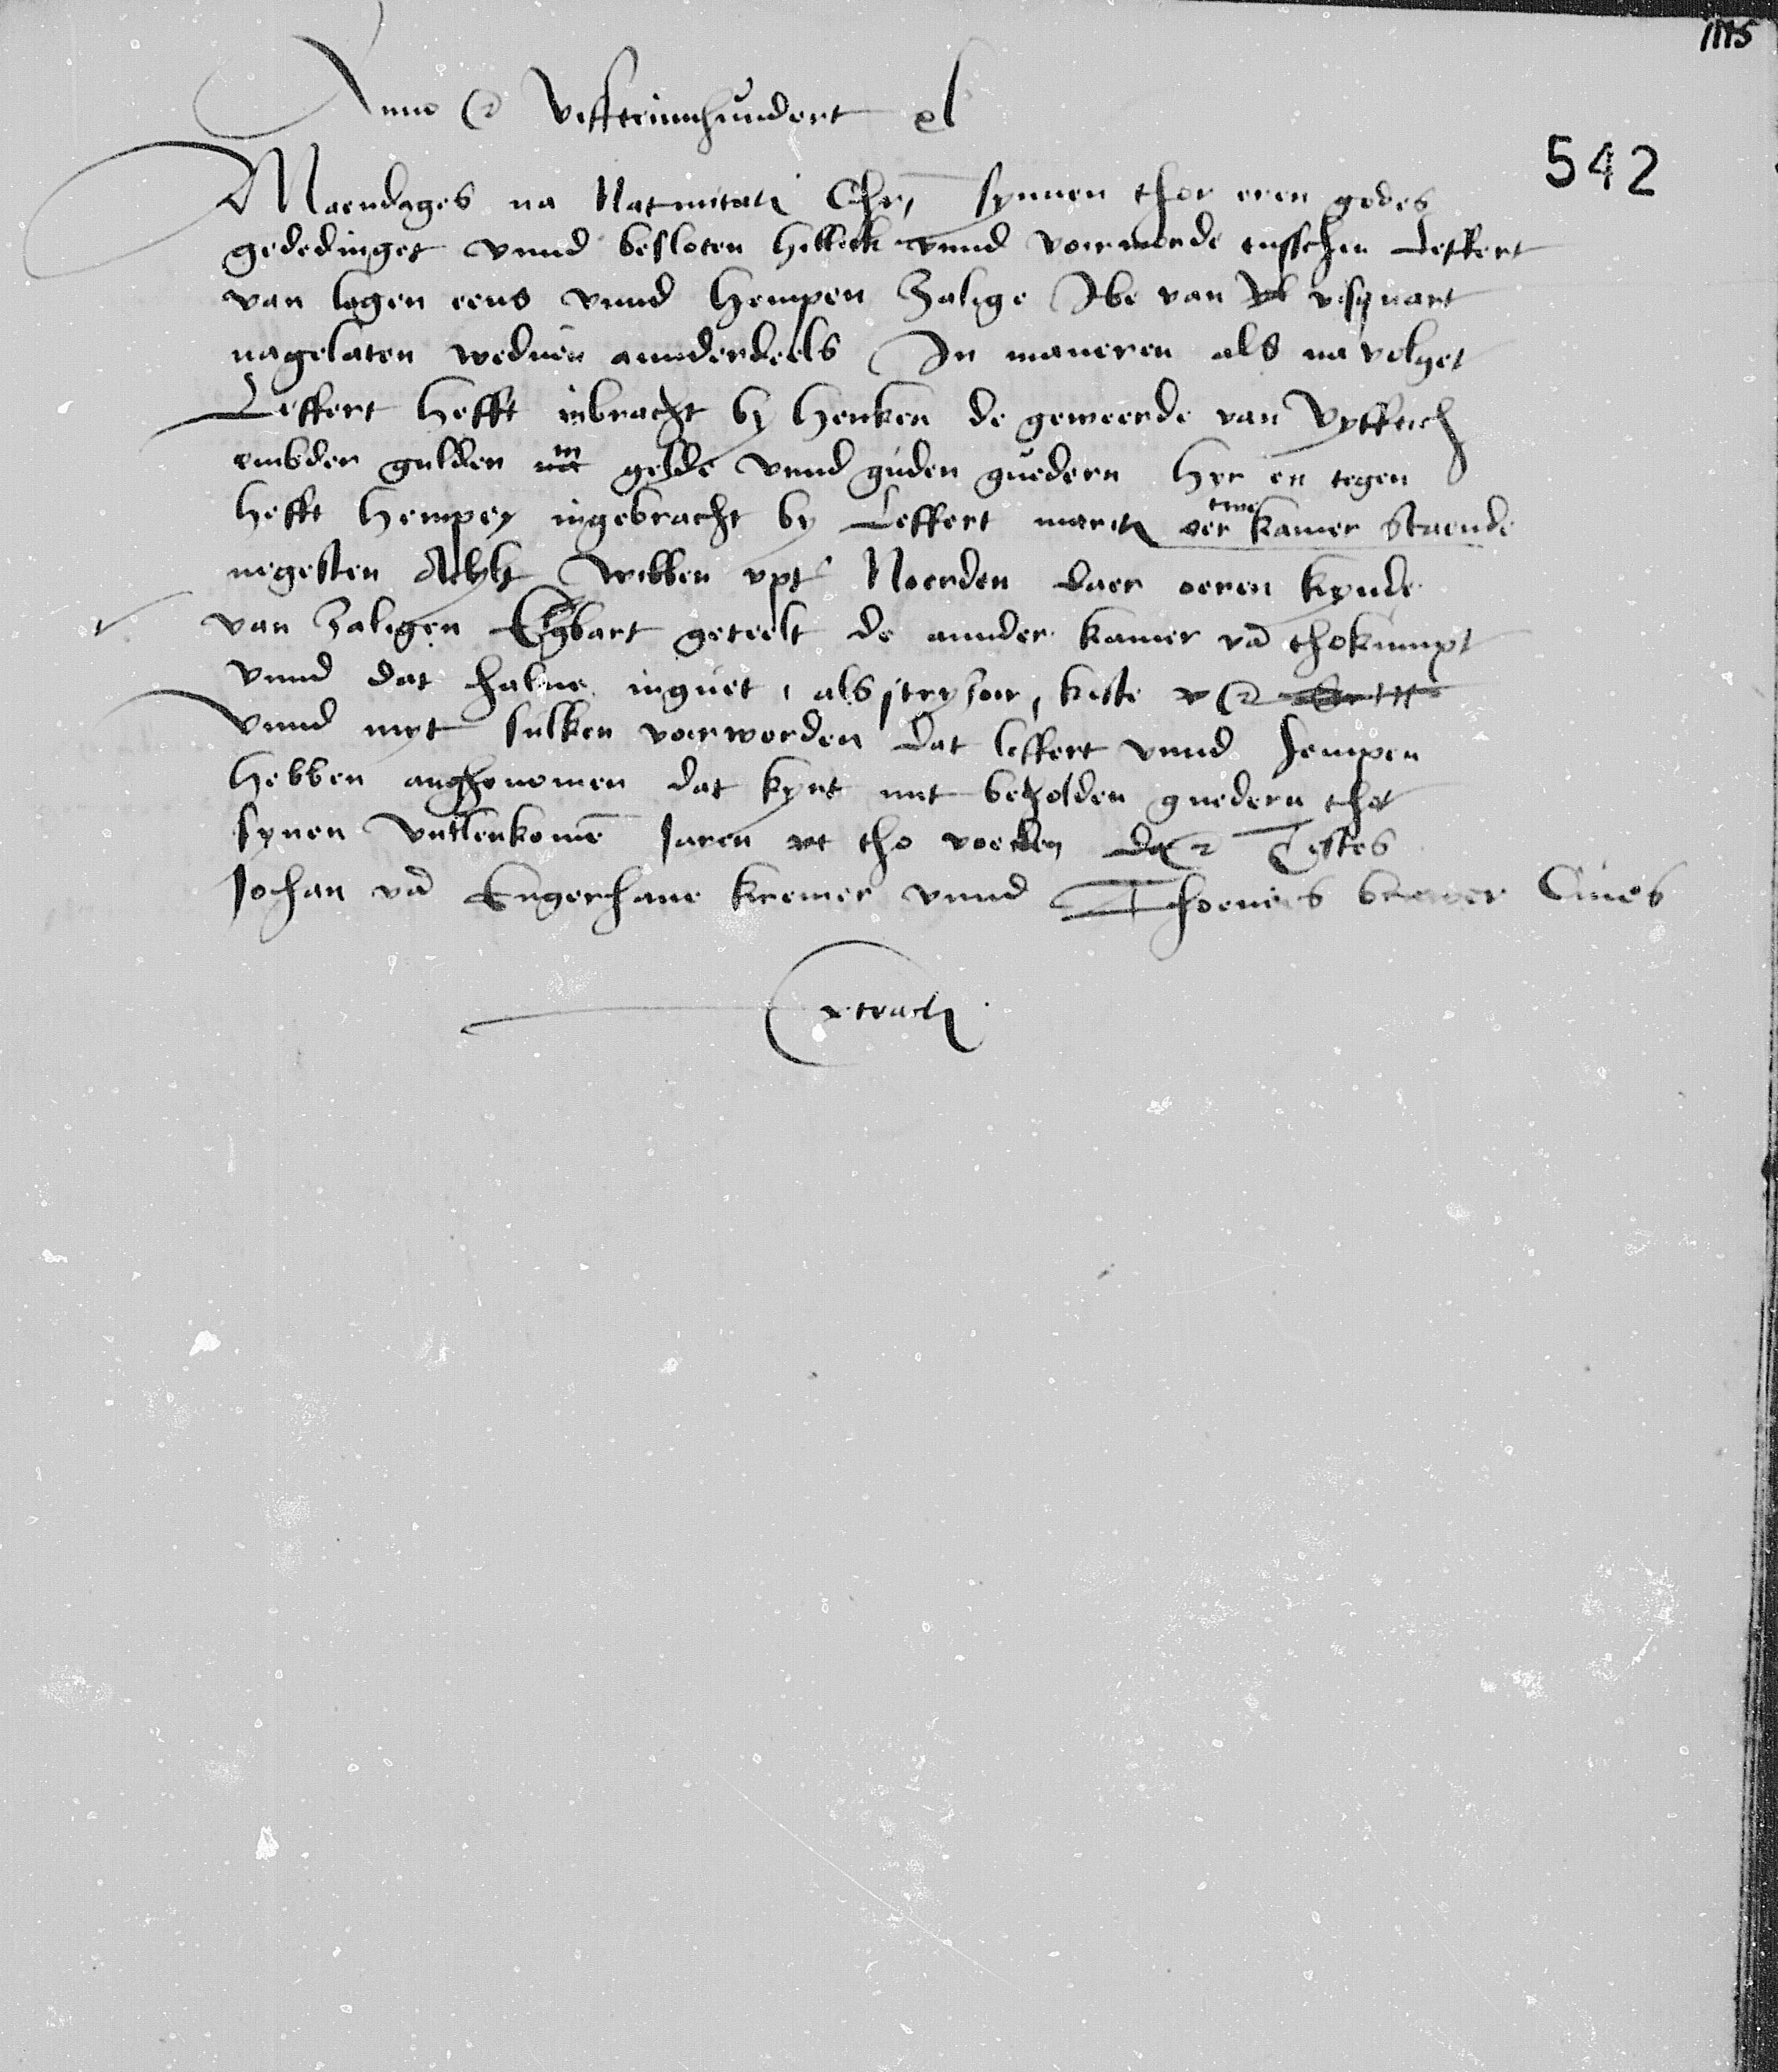 1115
Anno &c Veffteinnhundert xl
542
Maendages na Natiuitatis Chri, synnen thor eren godes
gededinget vnnd besloten hillick vnnd voirworde tusschen Leffert
van logen eens vnnd Hempen Zalige Ibe van visquart
nagelaten weduen annderdeels In maneren als na volget
Leffert hefft inbracht by Henken de geweerde van Vyfftich
embder gulden in gelde vnnd guden guedern Hyr en tegen
hefft Hempen ingebracht by Leffert oer twe kamer Staende
negesten Wibben vpt Noerden daer oeren kynde
van Zaligen Egbart geteelt de annder kamer vā thokumpt
vnnd dat halue inguet, als trysoir, kiste &c
Vnnd myt sulken voerworden dat leffert vnnd hempen
Hebben anghenomen dat kynt mit beholden guedern thot
synen Vullenkomē Jaren vt tho voeden &c Testes
Johan vā Engerhaue kremer vnnd Thoenies Ciues
extractū